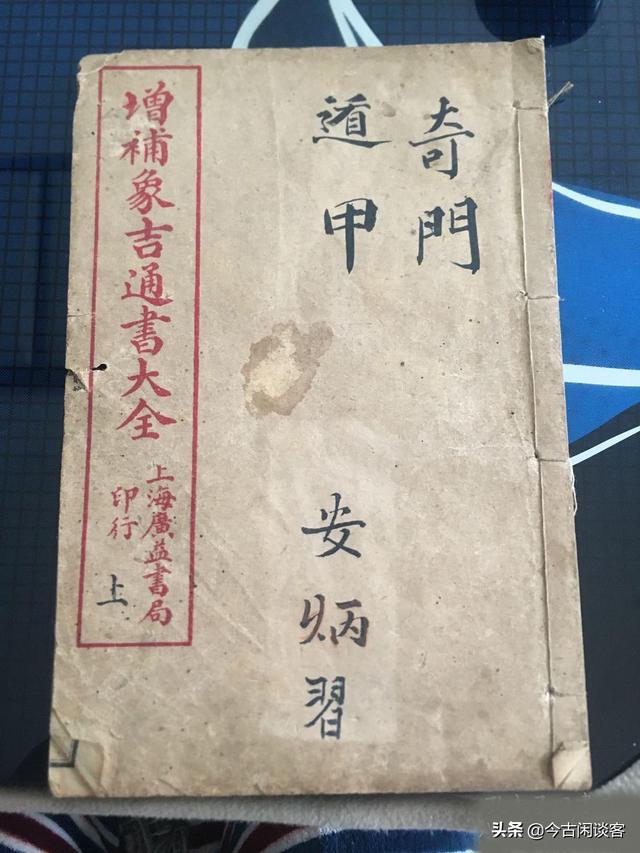 奇門
遁甲
安炳習
增補象吉通書大全
上海廣益書局
印行
上
头条 @今古闲谈客